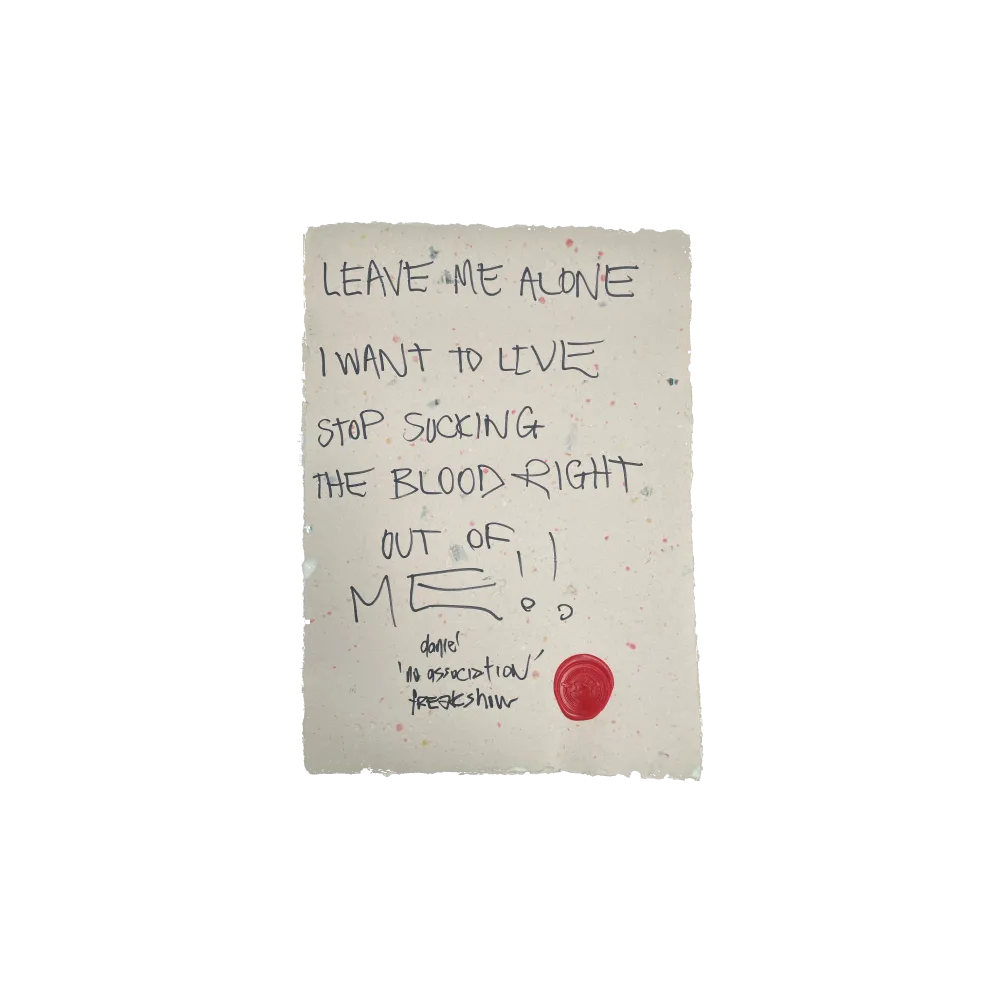 LEAVE ME ALONE
I WANT TO LIVE
STOP SUCKING
THE BLOOD RIGHT
OUT OF
ME!!
daniel
'no association'
freakshow